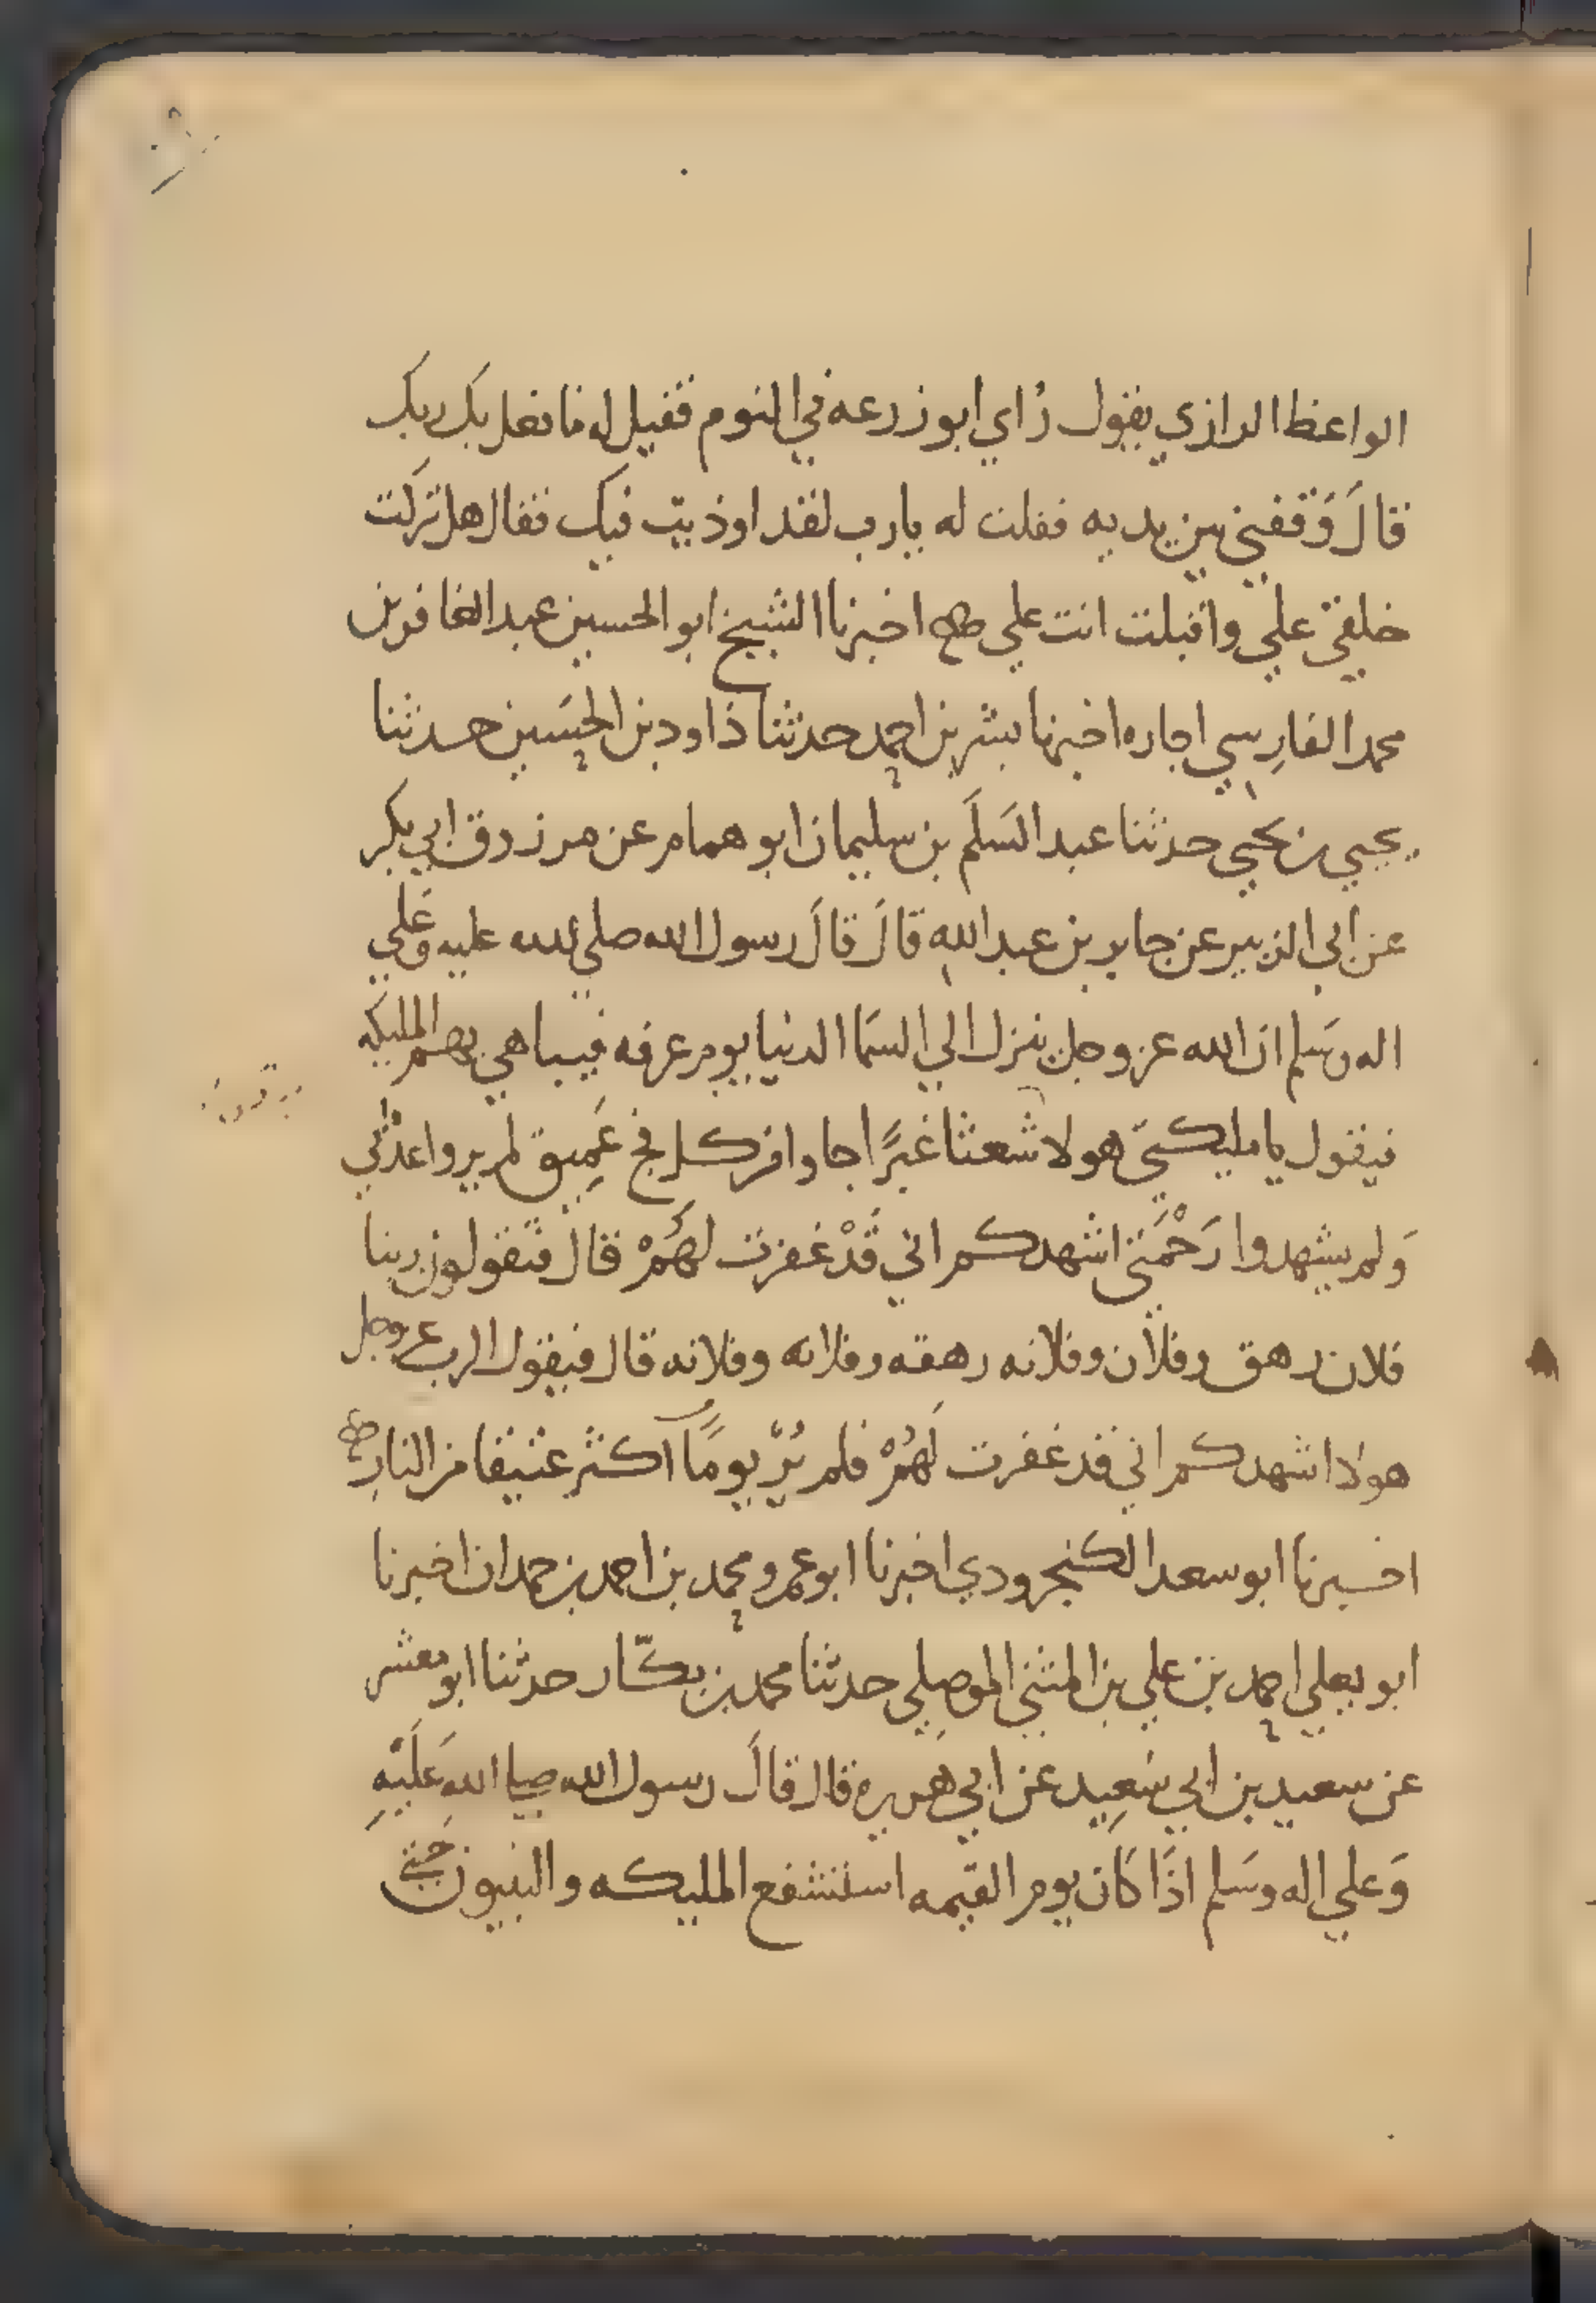 الواعظ الرازي يقول رُاي ابو زرعه في النوم فقيل له ما فعل بك ربك
قالَ وَقففني بين يديه فقلت له يا رب لقد اوذيت فيك فقال هل تركت
خلقي علي واقبلت انت علي اخبرنا الشيخ ابو الحسين عبد الغافر بن
محمد الفارِسي اجازه اخبرنا بشر بن احمد حدثنا داود بن الحسَين حدثنا
يحيي بن يحيي حدثنا عبد السَلَم بن سليمان ابو همام عن مرزوق ابي بكر
عن ابي الزبير عن جابر بن عبد الله قالَ قالَ رسول الله صلي الله عليه وعَلي
اله وسَلم ان الله عز وجل ينزل الي السمَا الدنيا يوم عرفه فيباهي بهم المليكه
فيقول يا مليكتي هولا شعثا غبرًا جاوا من كل فج عَمِيق لم يروا عذابي
وَلم يشهدوا رَحْمَتي اشهدكم اني قَدْ غفرت لهُمْ قال فتقولون ربنا
فلان رهق وفلان وفلانه رهقه وفلانه وفلانه قال فيقول الرب عز وجل
هولا اشهدكم اني قد غفرت لَهُمْ فلم يُرَ يومًا اكثر عتيقا من النار
اخبرنا ابو سعد الكنجرودي اخبرنا ابو عمرو محمد بن احمد بن حمدان اخبرنا
ابو يعلي احمد بن علي بن المثني الموصلي حدثنا محمد بن بكّار حدثنا ابو معشر
عن سعيد بن ابي سَعِيد عن ابي هَريره قال قالَ رسول الله صلي الله عَلَيْهِ
وَعلي اله وسَلم اذَا كَان يوم القيمه استشفع المليكه والنبيون حَتي